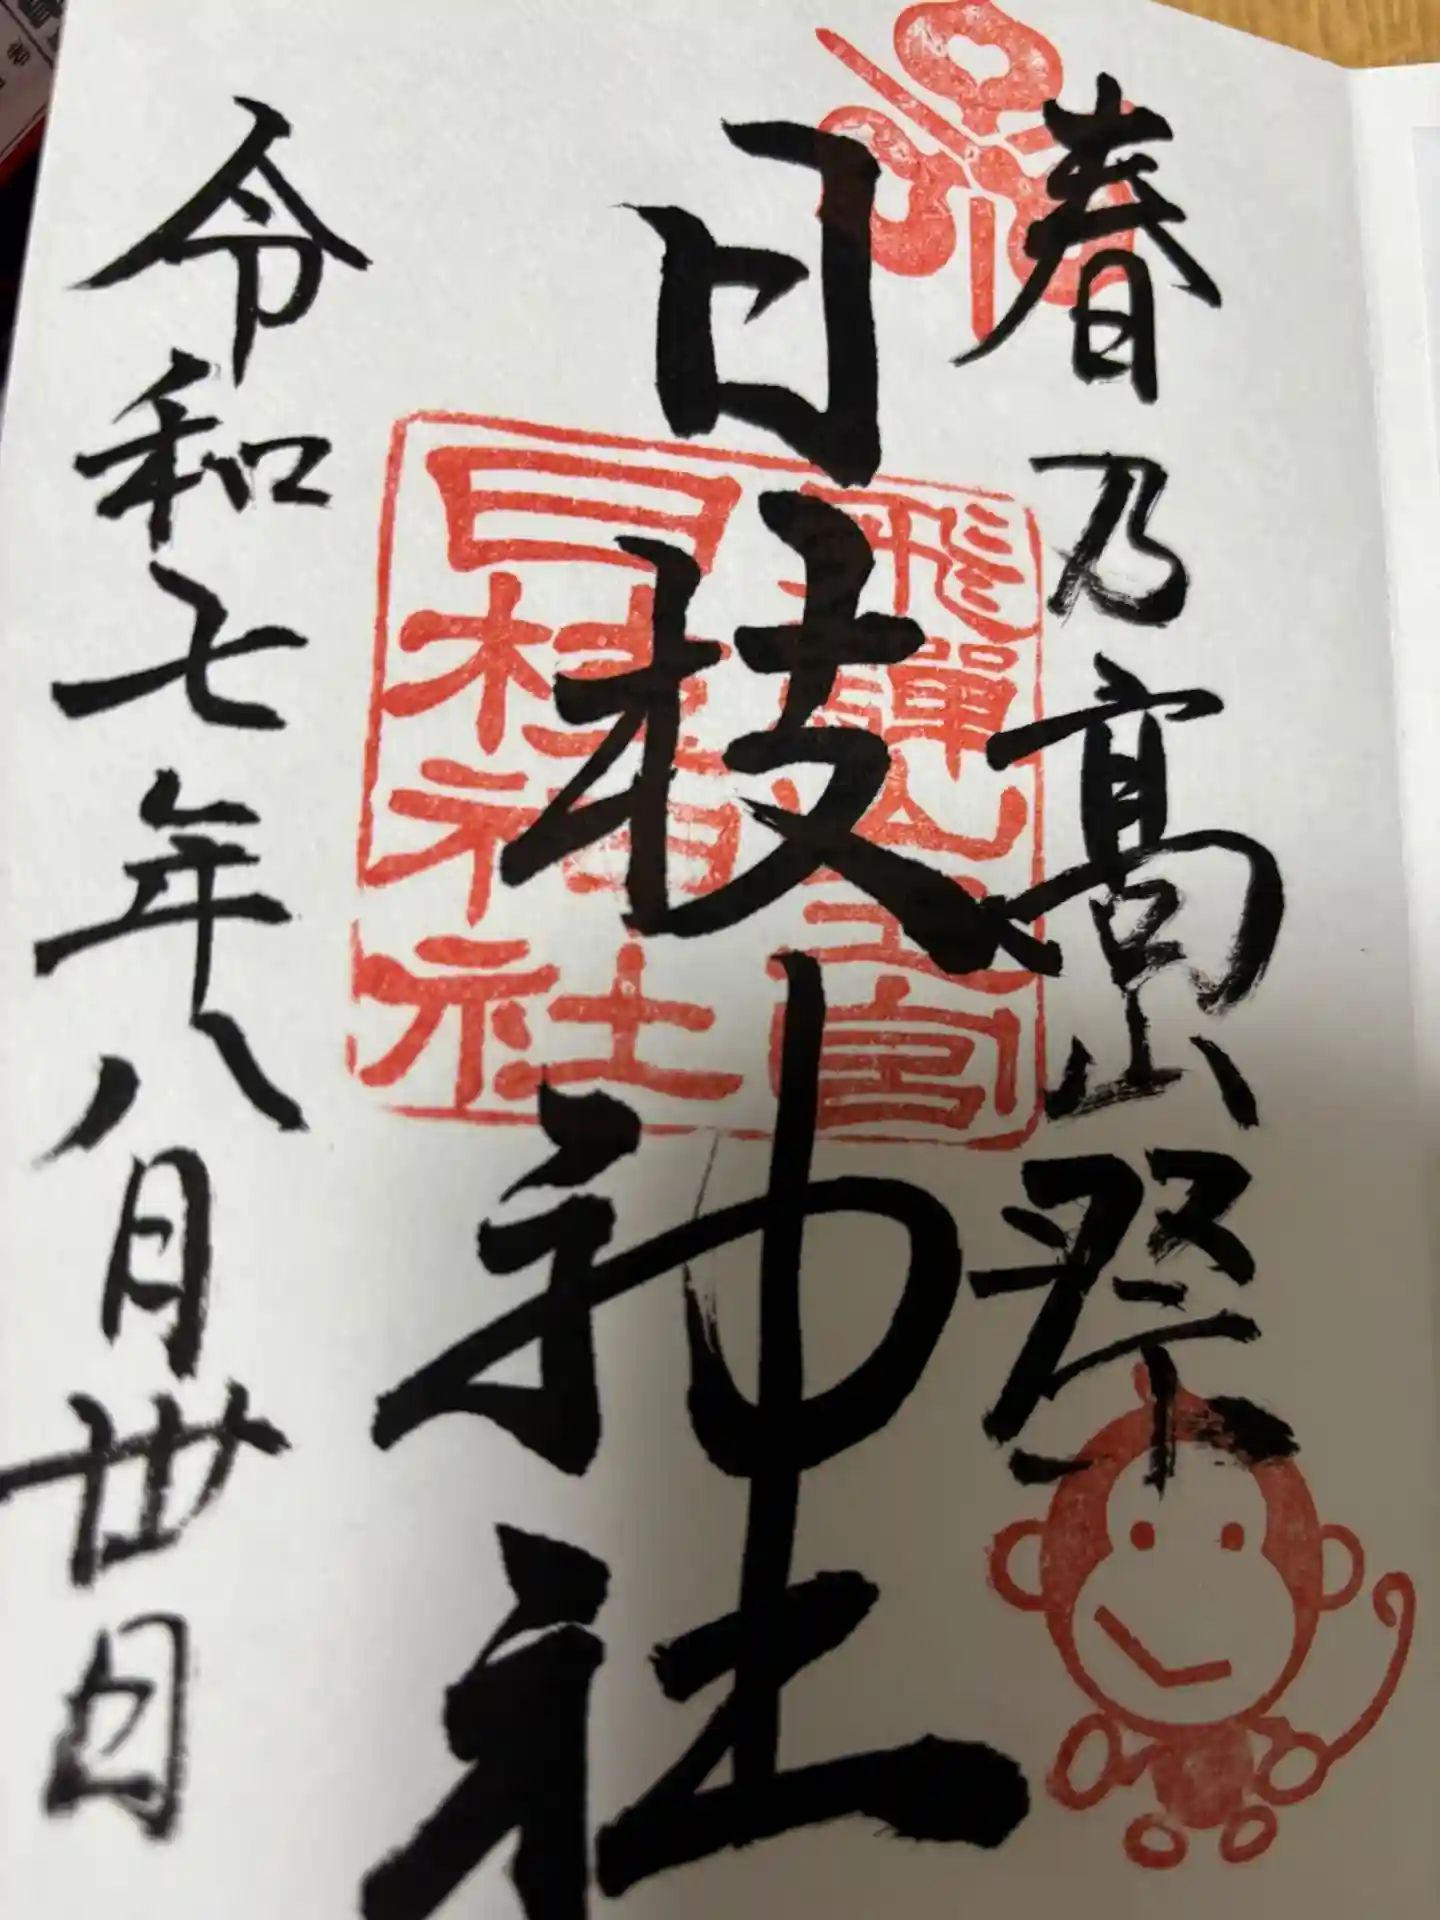 春乃髙山祭
日枝神社
飛驒山王宮
日枝神社
令和七年八月卅日